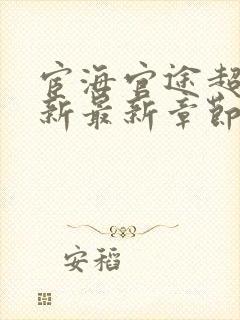 宦海官途超
新最新章节
安稻